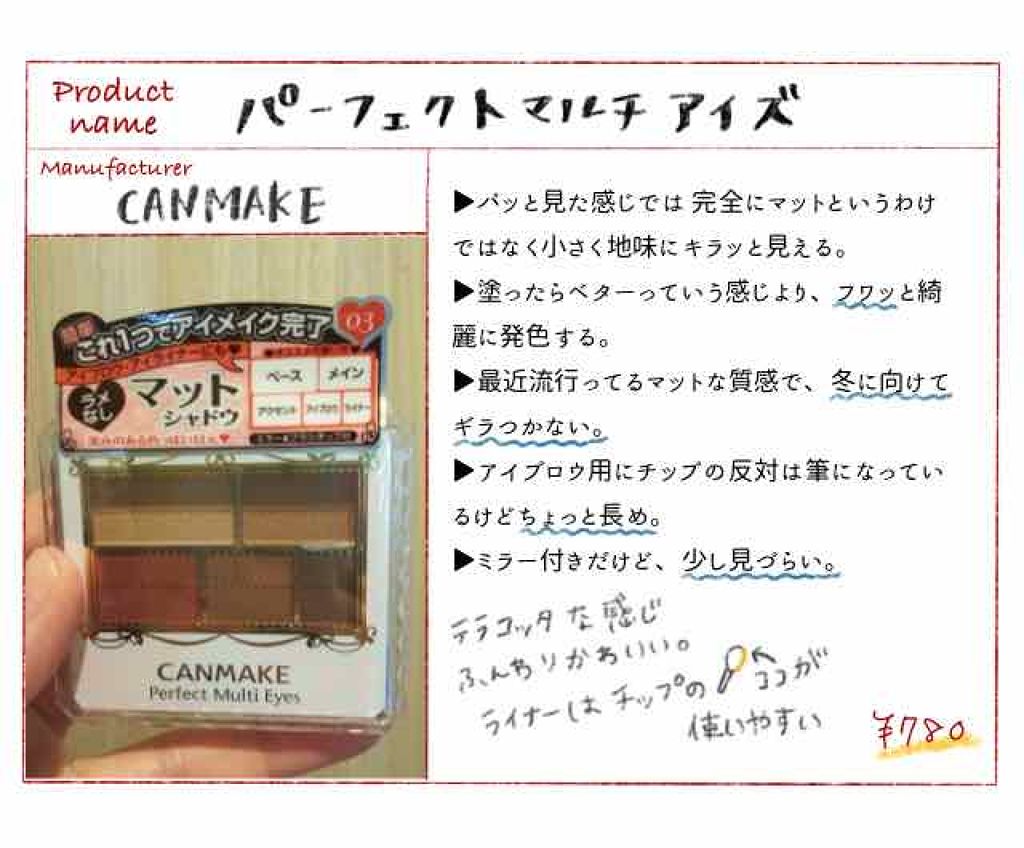 Product
name
パーフェクトマルチアイズ
Manufacturer
CANMAKE
▶パッと見た感じでは完全にマットというわけ
ではなく小さく地味にキラッと見える。
▶塗ったらベターっていう感じより、フワッと綺
麗に発色する。
▶最近流行ってるマットな質感で、冬に向けて
ギラつかない。
▶アイブロウ用にチップの反対は筆になってい
るけどちょっと長め。
▶ミラー付きだけど、少し見づらい。
テラコッタな感じ
ふんわりかわいい。
ライナーはチップの ココが
使いやすい
¥780
これ1つでアイメイク完了
03
アイブロウ・アイライナーにも
ラメ
なし
マット
シャドウ
ベース
メイン
アクセント
アイブロウ
ライナー
CANMAKE
Perfect Multi Eyes